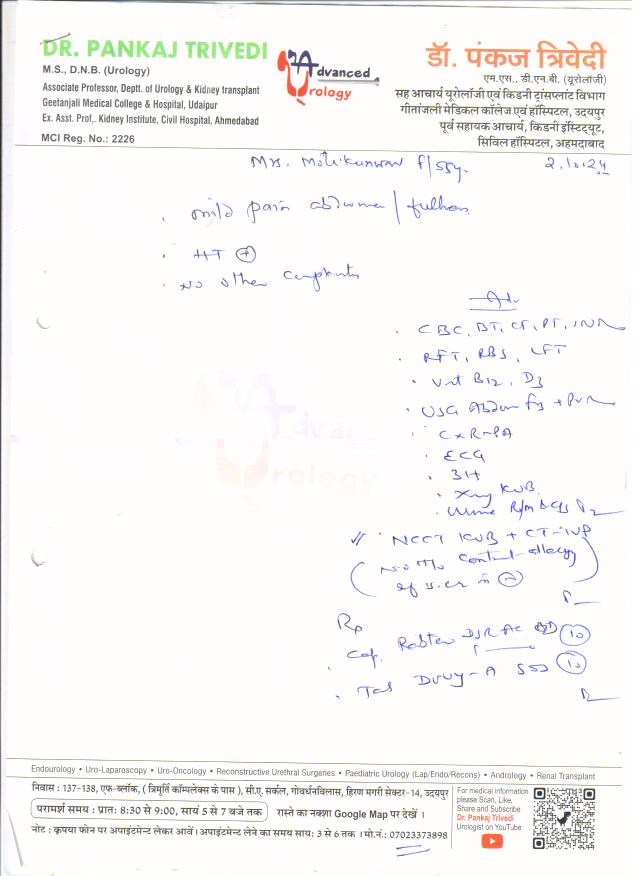 DR. PANKAJ TRIVEDI
M.S., D.N.B. (Urology)
Associate Professor, Deptt. of Urology & Kidney transplant
Geetanjali Medical College & Hospital, Udaipur
Ex. Asst. Prof,. Kidney Institute, Civil Hospital, Ahmedabad
MCI Reg. No.: 2226
Advanced
Urology
डॉ. पंकज त्रिवेदी
एम.एस., डी.एन.बी. (यूरोलॉजी)
सह आचार्य यूरोलॉजी एवं किडनी ट्रांसप्लांट विभाग
गीतांजली मेडिकल कॉलेज एवं हॉस्पिटल, उदयपुर
पूर्व सहायक आचार्य, किडनी इंस्टिट्यूट,
सिविल हॉस्पिटल, अहमदाबाद
Mrs. F/55y. 2.10.24
mild pain abdomen /
HT +
No other complaints
Adv
CBC, BT, CT, PT, INR
RFT, RBS, LFT
Vit B12, D3
USG Abdomen + PVR
CxR-PA
ECG
3H
Xray KUB
Urine R/m &
NCCT KUB + CT-IVP
(No H/o contrast allergy
if s.cr is n)
Rp
Cap. DSR 10
Tab -A 10
Advanced
Urology
Endourology • Uro-Laparoscopy • Uro-Oncology • Reconstructive Urethral Surgeries • Paediatric Urology (Lap/Endo/Recons) • Andrology • Renal Transplant
निवास : 137-138, एफ-ब्लॉक, ( त्रिमूर्ति कॉम्पलेक्स के पास ), सी.ए. सर्कल, गोवर्धनविलास, हिरण मगरी सेक्टर-14, उदयपुर
परामर्श समय : प्रातः 8:30 से 9:00, सायं 5 से 7 बजे तक रास्ते का नक्शा Google Map पर देखें ।
नोट : कृपया फोन पर अपाइंटमेन्ट लेकर आवें । अपाइंटमेन्ट लेने का समय सायः 3 से 6 तक । मो.नं.: 07023373898
For medical information
please Scan, Like,
Share and Subscribe
Dr. Pankaj Trivedi
Urologist on YouTube